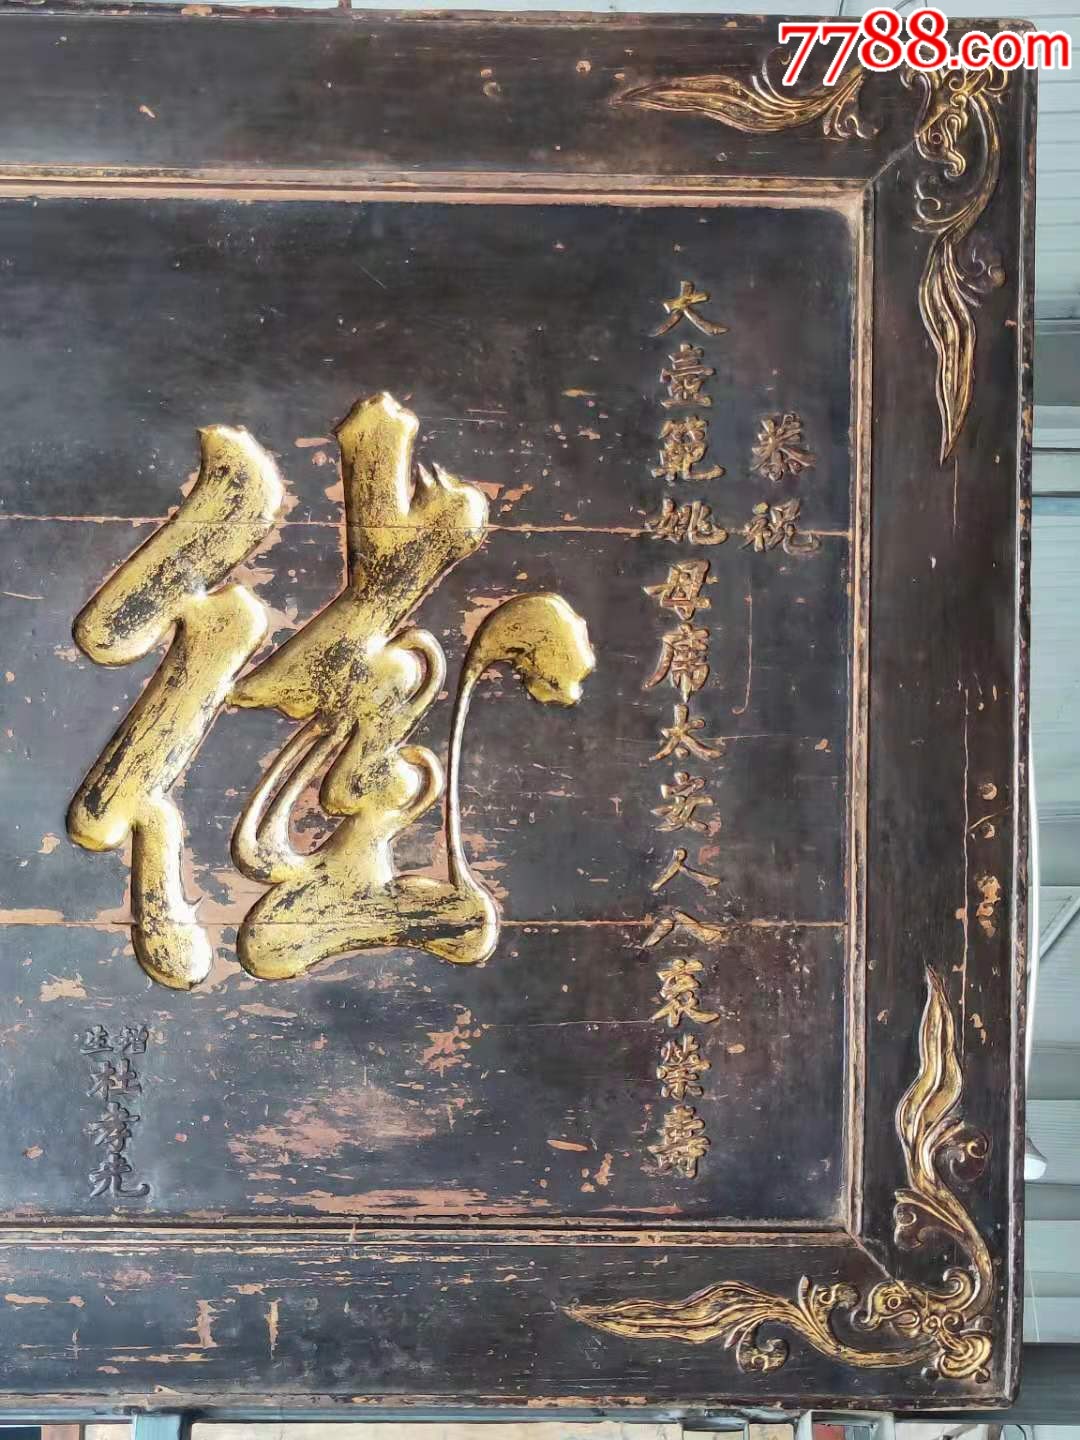 恭祝
大壼範姚母席太安人八袠榮壽
增生杜孝先
7788.com